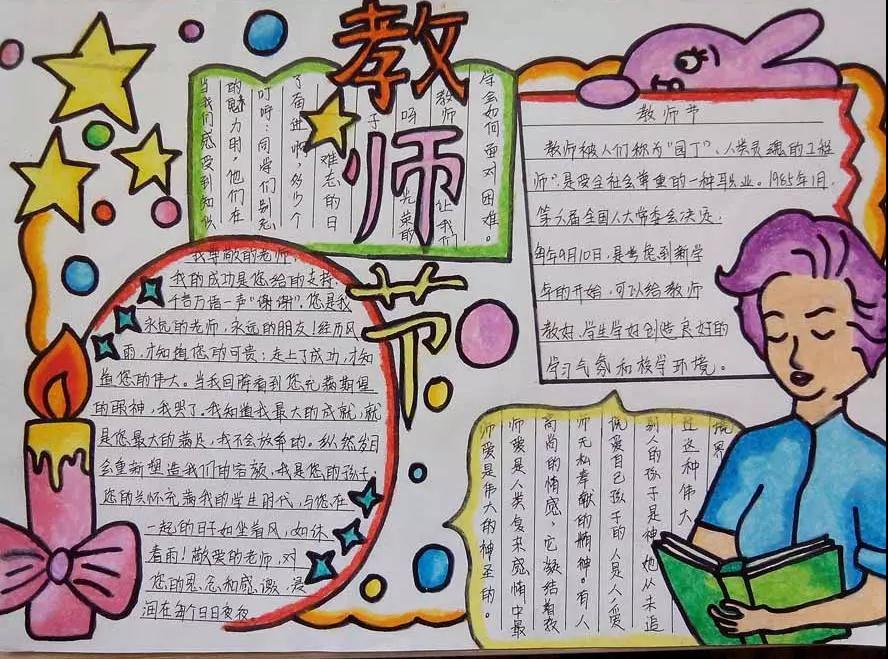 教
师
节
当我们感受到知识
的魅力时,他们在
叮咛:同学们别忘
了奋进啊,多少个
难忘的日
子
呀
光荣的
教师
让我们
学会如何面对困难。
教师节
教师被人们称为“园丁”、人类灵魂的工程
师”,是受全社会尊重的一种职业。1985年1月,
第六届全国人大常委会决定,
每年9月10日,是考虑到新学
年的开始,可以给教师
教好、学生学好创造良好的
学习气氛和校学环境。
我尊敬的老师
我的成功是您给的支持,
千言万语一声“谢谢”,您是我
永远的老师,永远的朋友!经历风
雨,才知道您的可贵;走上了成功,才知
道您的伟大。当我回眸看到您充满期望
的眼神,我哭了,我知道我最大的成就,就
是您最大的满足,我不会放弃的。纵然岁月
会重新塑造我们的容颜,我是您的孩子;
您的关怀充满我的学生时代,与您在
一起的日子如坐着风,如沐
春雨!敬爱的老师,对
您的思念和感激,浸
润在每个日日夜夜
师爱是伟大的神圣的。
师爱是人类复杂感情中最
高尚的情感,它凝结着教
师无私奉献的精神。有人
说爱自己孩子的人是人,爱
别人的孩子是神,她从未追
过这种伟大